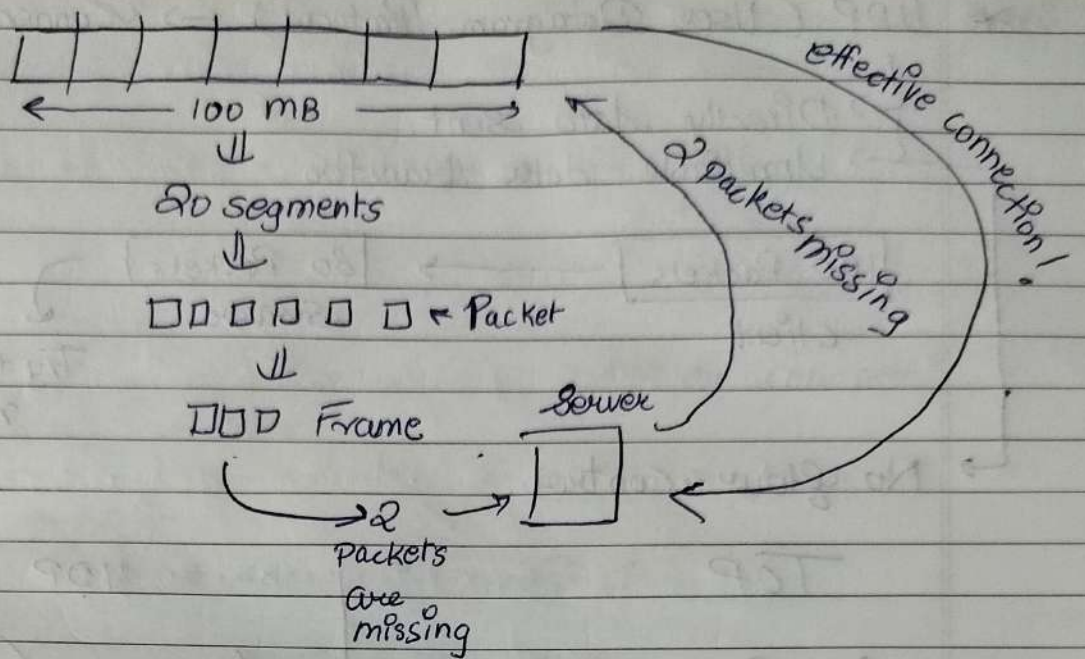 100 MB
20 segments
Packet
Frame
Server
2
Packets
are
missing
2 packets missing
effective connection!